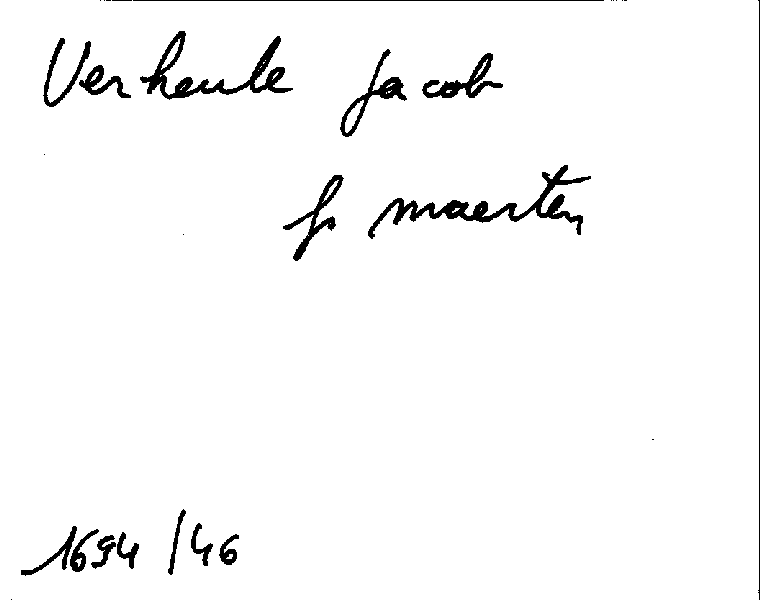 Verheule Jacob
fs maerten
1694/46